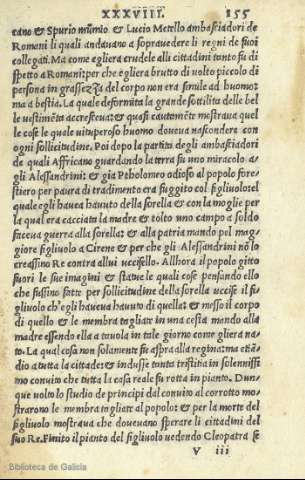 XXXVIII. 155
cano & Spurio mũmio & Lucio Metello ambasciadori de
Romani li quali andauano a soprauedere li regni de suoi
collegati. Ma come egliera crudele alli cittadini tanto fu di
spetto a Romani: per che egliera brutto di volto piccolo di
persona in grassezza del corpo non era simile ad huomo:
ma a bestia. La quale deformita la grande sottilita delle bel
le vestimẽta accresceua: & quasi cautamẽte mostraua quel
le cose le quale vituperoso huomo doueua nascondere con
ogni sollicitudine. Poi dopo la partita degli ambasciadori
de quali Affricano guardando la terra fu uno miracolo a
gli Alessandrini: & gia Ptholomeo odioso al popolo fore
stiero per paura di tradimento era fuggito col figliuolo: el
quale egli haueа hauuto della sorella & con la moglie per
la qual era cacciata la madre & tolto uno campo a soldo
faceua guerra alla sorella: & alla patria mando pel mag
giore figliuolo a Cirene & per che gli Alessandrini nõ lo
creassino Re contra allui uccisello. Allhora il popolo gitto
fuori le sue imagini & statue le quali cose pensando ello
che fussino fatte per sollicitudine della sorella uccise il fi
gliuolo ch'egli haueua hauuto di quella: & messo il corpo
di quello & le membra tagliate in una cesta mando alla
madre essendo ella a tauola in tale giorno come gliera na
to. La qual cosa non solamente fu aspra alla regina: ma etiã
dio a tutta la cittade: & indusse tanta tristitia in solennissi
mo conuito che tutta la casa reale fu rotta in pianto. Dun-
que volto lo studio de principi dal conuito al corrotto mo
strarono le membra tagliate al popolo: & per la morte del
figliuolo mostrarono che doueuano sperare li cittadini del
suo Re. Finito il pianto del figliuolo uedendo Cleopatra se
V iii
Biblioteca de Galicia